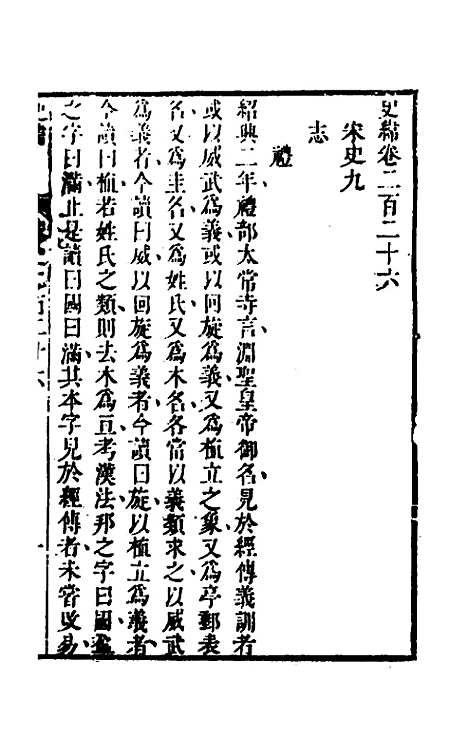 史緯卷二百二十六
宋史九
志
禮
紹興二年禮部太常寺言淵聖皇帝御名見於經傳義訓者
或以威武爲義或以回旋爲義又爲植立之象又爲亭郵表
名又爲圭名又爲姓氏又爲木名各當以義類求之以威武
爲義者今讀曰威以回旋爲義者今讀曰旋以植立爲義者
今讀曰植若姓氏之類則去木爲亘考漢法邦之字曰國盈
之字曰滿止是讀曰國曰滿其本字見於經傳者未嘗改易